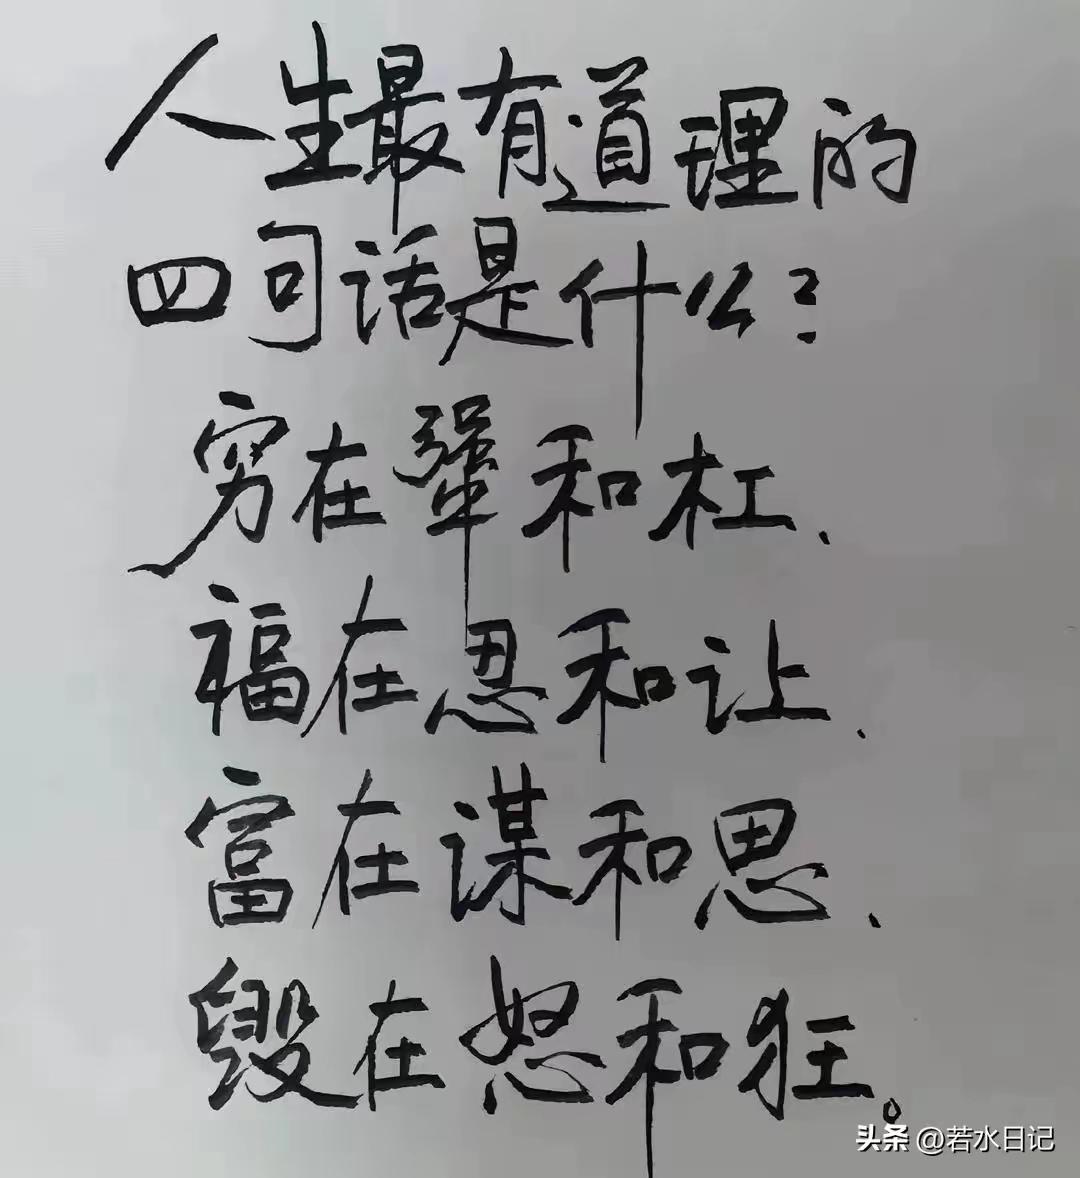 人生最有道理的
四句话是什么?
穷在犟和杠、
福在忍和让、
富在谋和思、
毁在怒和狂。
头条 @若水日记